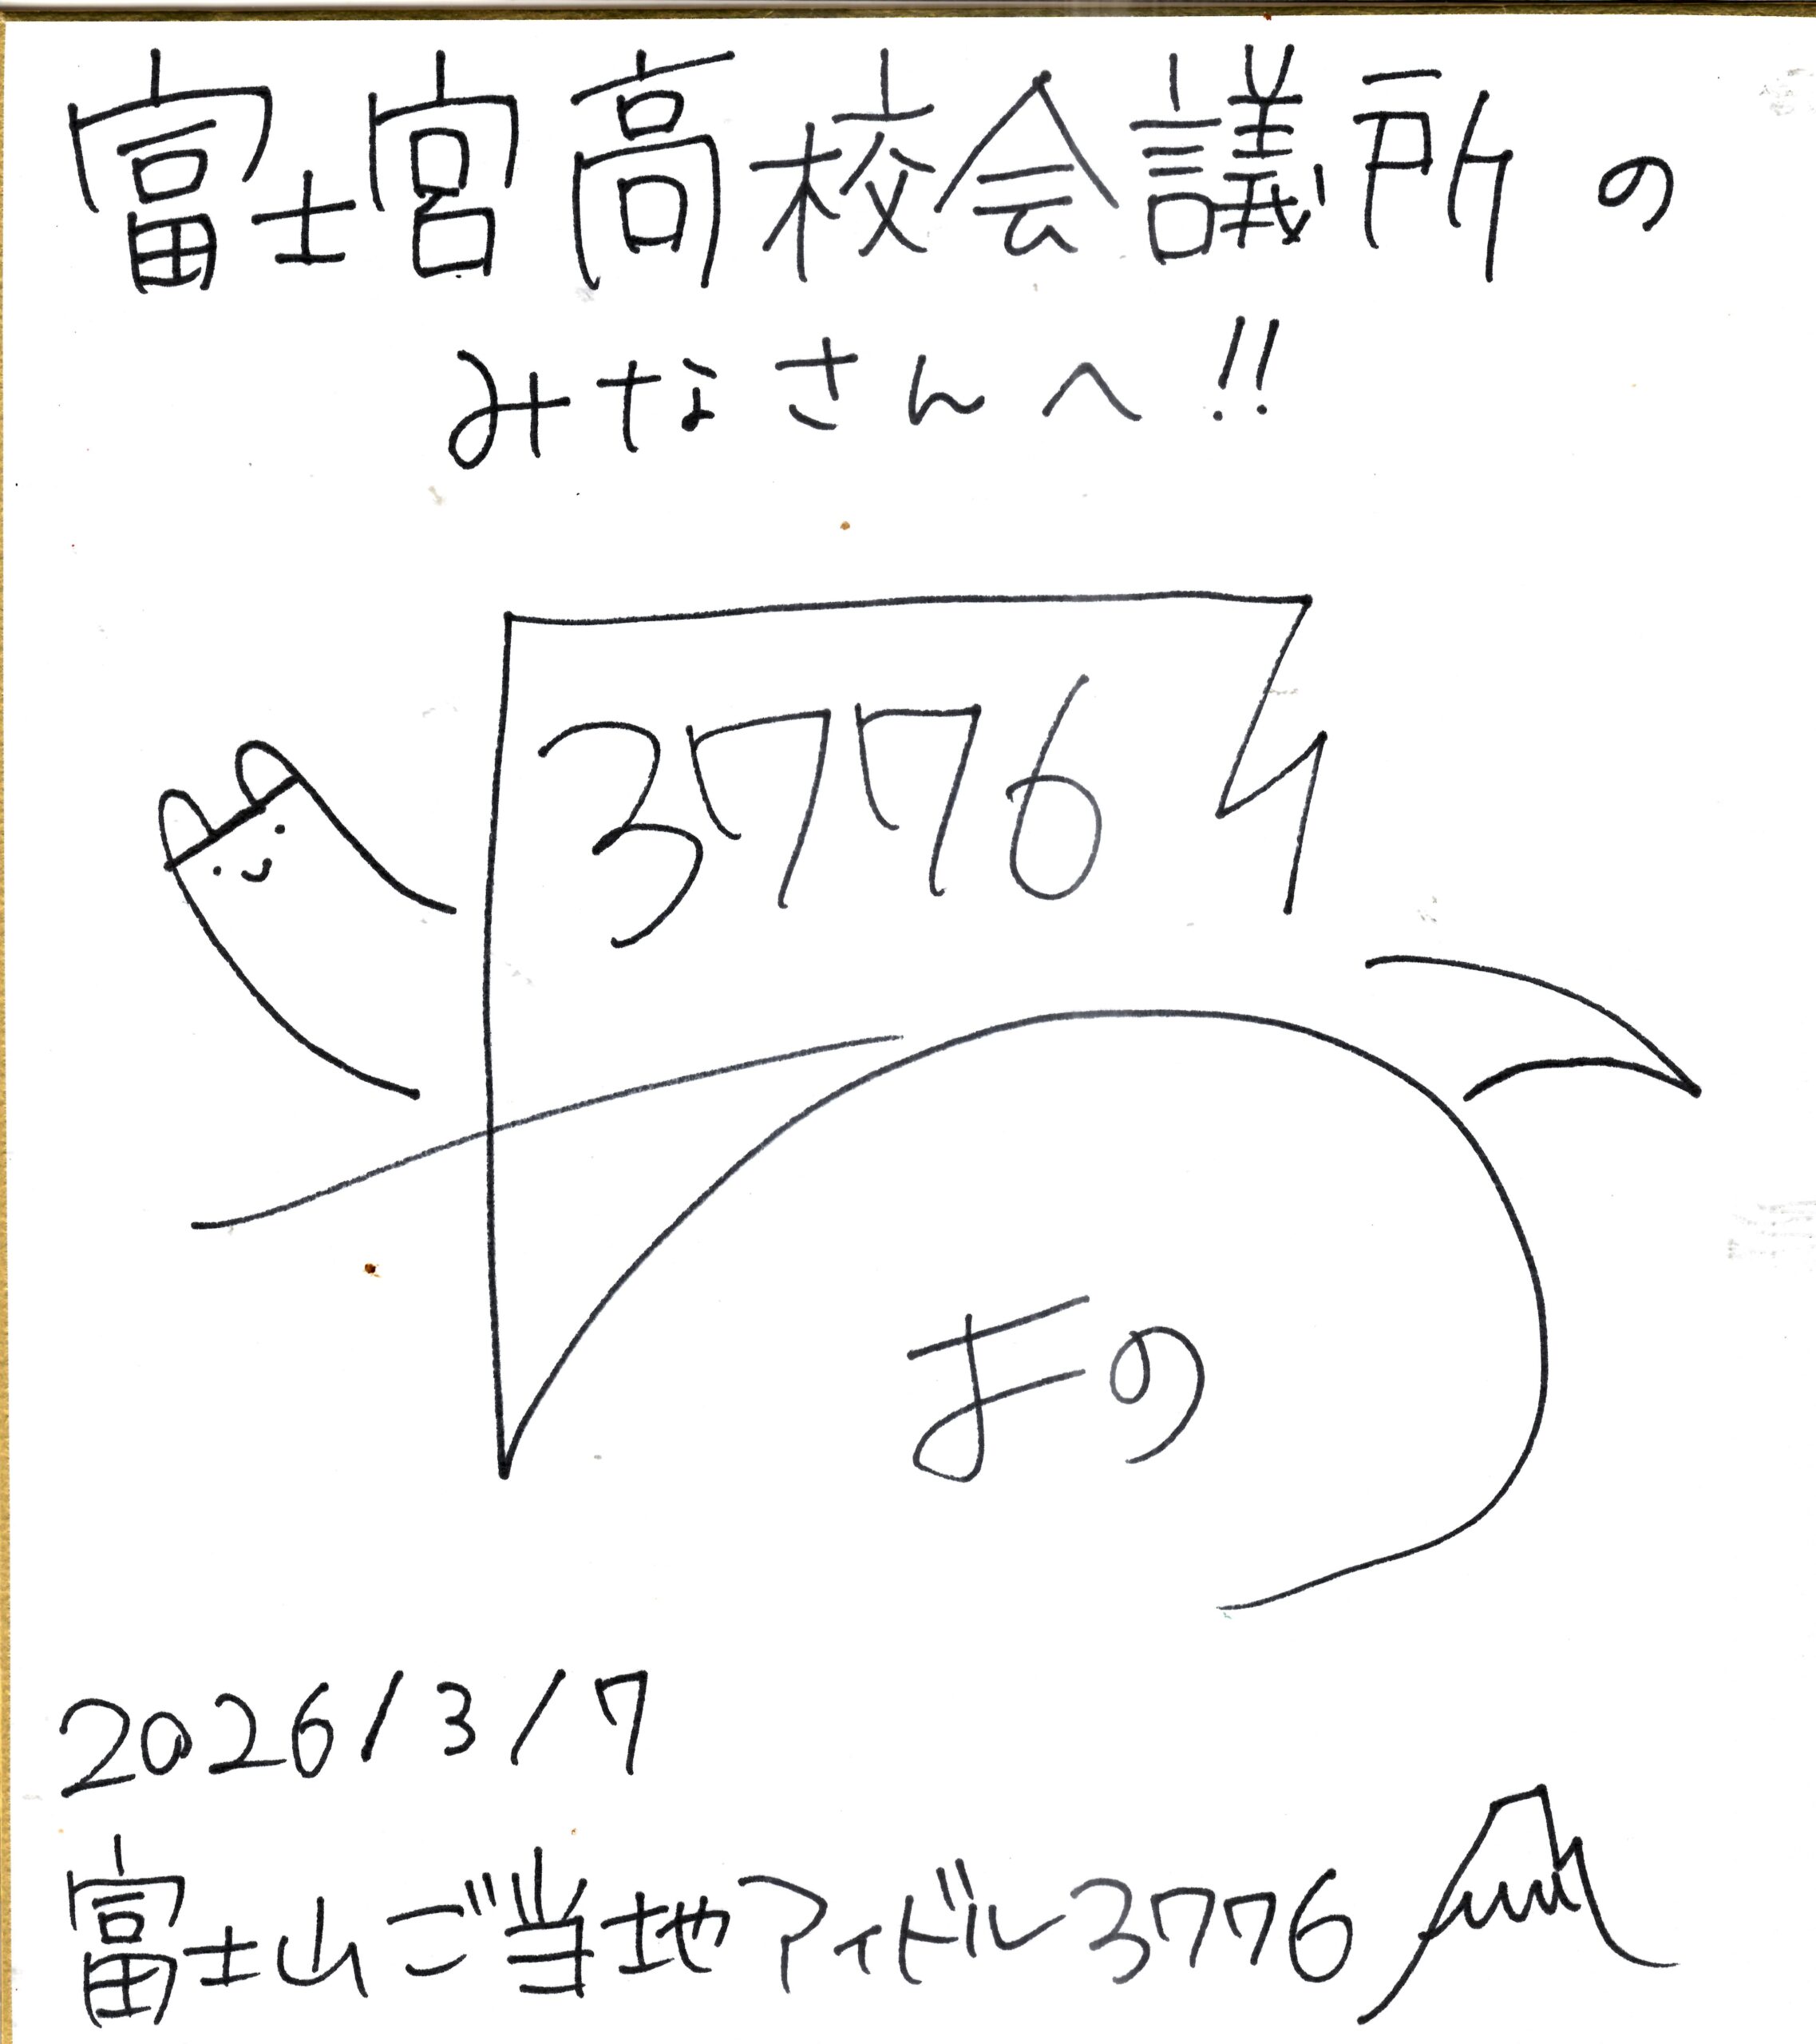 富士宮高校会議所の
みなさんへ!!
3776
まの
2026/3/7
富士山ご当地アイドル3776